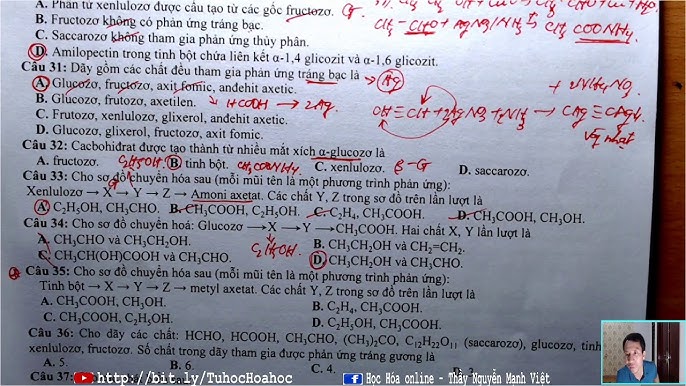 A. Phân tử xenlulozơ được cấu tạo từ các gốc fructozơ. G.
B. Fructozơ không có phản ứng tráng bạc.
C. Saccarozơ không tham gia phản ứng thủy phân.
D. Amilopectin trong tinh bột chứa liên kết α-1,4 glicozit và α-1,6 glicozit.
Câu 31: Dãy gồm các chất đều tham gia phản ứng tráng bạc là → Ag
A. Glucozơ, fructozơ, axit fomic, anđehit axetic.
B. Glucozơ, frutozơ, axetilen. → HCOOH → 2Ag
CH≡CH + 2AgNO3 + 2NH3 → CAg≡CAg↓
+ 2NH4NO3
vàng nhạt
C. Frutozơ, xenlulozơ, glixerol, anđehit axetic.
D. Glucozơ, glixerol, fructozơ, axit fomic.
Câu 32: Cacbohiđrat được tạo thành từ nhiều mắt xích α-glucozơ là
A. fructozơ. B. tinh bột. C. xenlulozơ. β-G D. saccarozơ.
C2H5OH CH3COONH4
Câu 33: Cho sơ đồ chuyển hóa sau (mỗi mũi tên là một phương trình phản ứng):
Xenlulozơ → X → Y → Z → Amoni axetat. Các chất Y, Z trong sơ đồ trên lần lượt là
A. C2H5OH, CH3CHO. B. CH3COOH, C2H5OH. C. C2H4, CH3COOH. D. CH3COOH, CH3OH.
Câu 34: Cho sơ đồ chuyển hoá: Glucozơ → X → Y → CH3COOH. Hai chất X, Y lần lượt là
A. CH3CHO và CH3CH2OH. C2H5OH B. CH3CH2OH và CH2=CH2.
C. CH3CH(OH)COOH và CH3CHO. D. CH3CH2OH và CH3CHO.
Câu 35: Cho sơ đồ chuyển hóa sau (mỗi mũi tên là một phương trình phản ứng):
Tinh bột → X → Y → Z → metyl axetat. Các chất Y, Z trong sơ đồ trên lần lượt là
A. CH3COOH, CH3OH. B. C2H4, CH3COOH.
C. CH3COOH, C2H5OH. D. C2H5OH, CH3COOH.
Câu 36: Cho dãy các chất: HCHO, HCOOH, CH3CHO, (CH3)2CO, C12H22O11 (saccarozơ), glucozơ, tinh
xenlulozơ, fructozơ. Số chất trong dãy tham gia được phản ứng tráng gương là
A. 5. B. 6. C. 4.
Câu 37:
http://bit.ly/TuhocHoahoc
Học Hóa online - Thầy Nguyễn Mạnh Việt